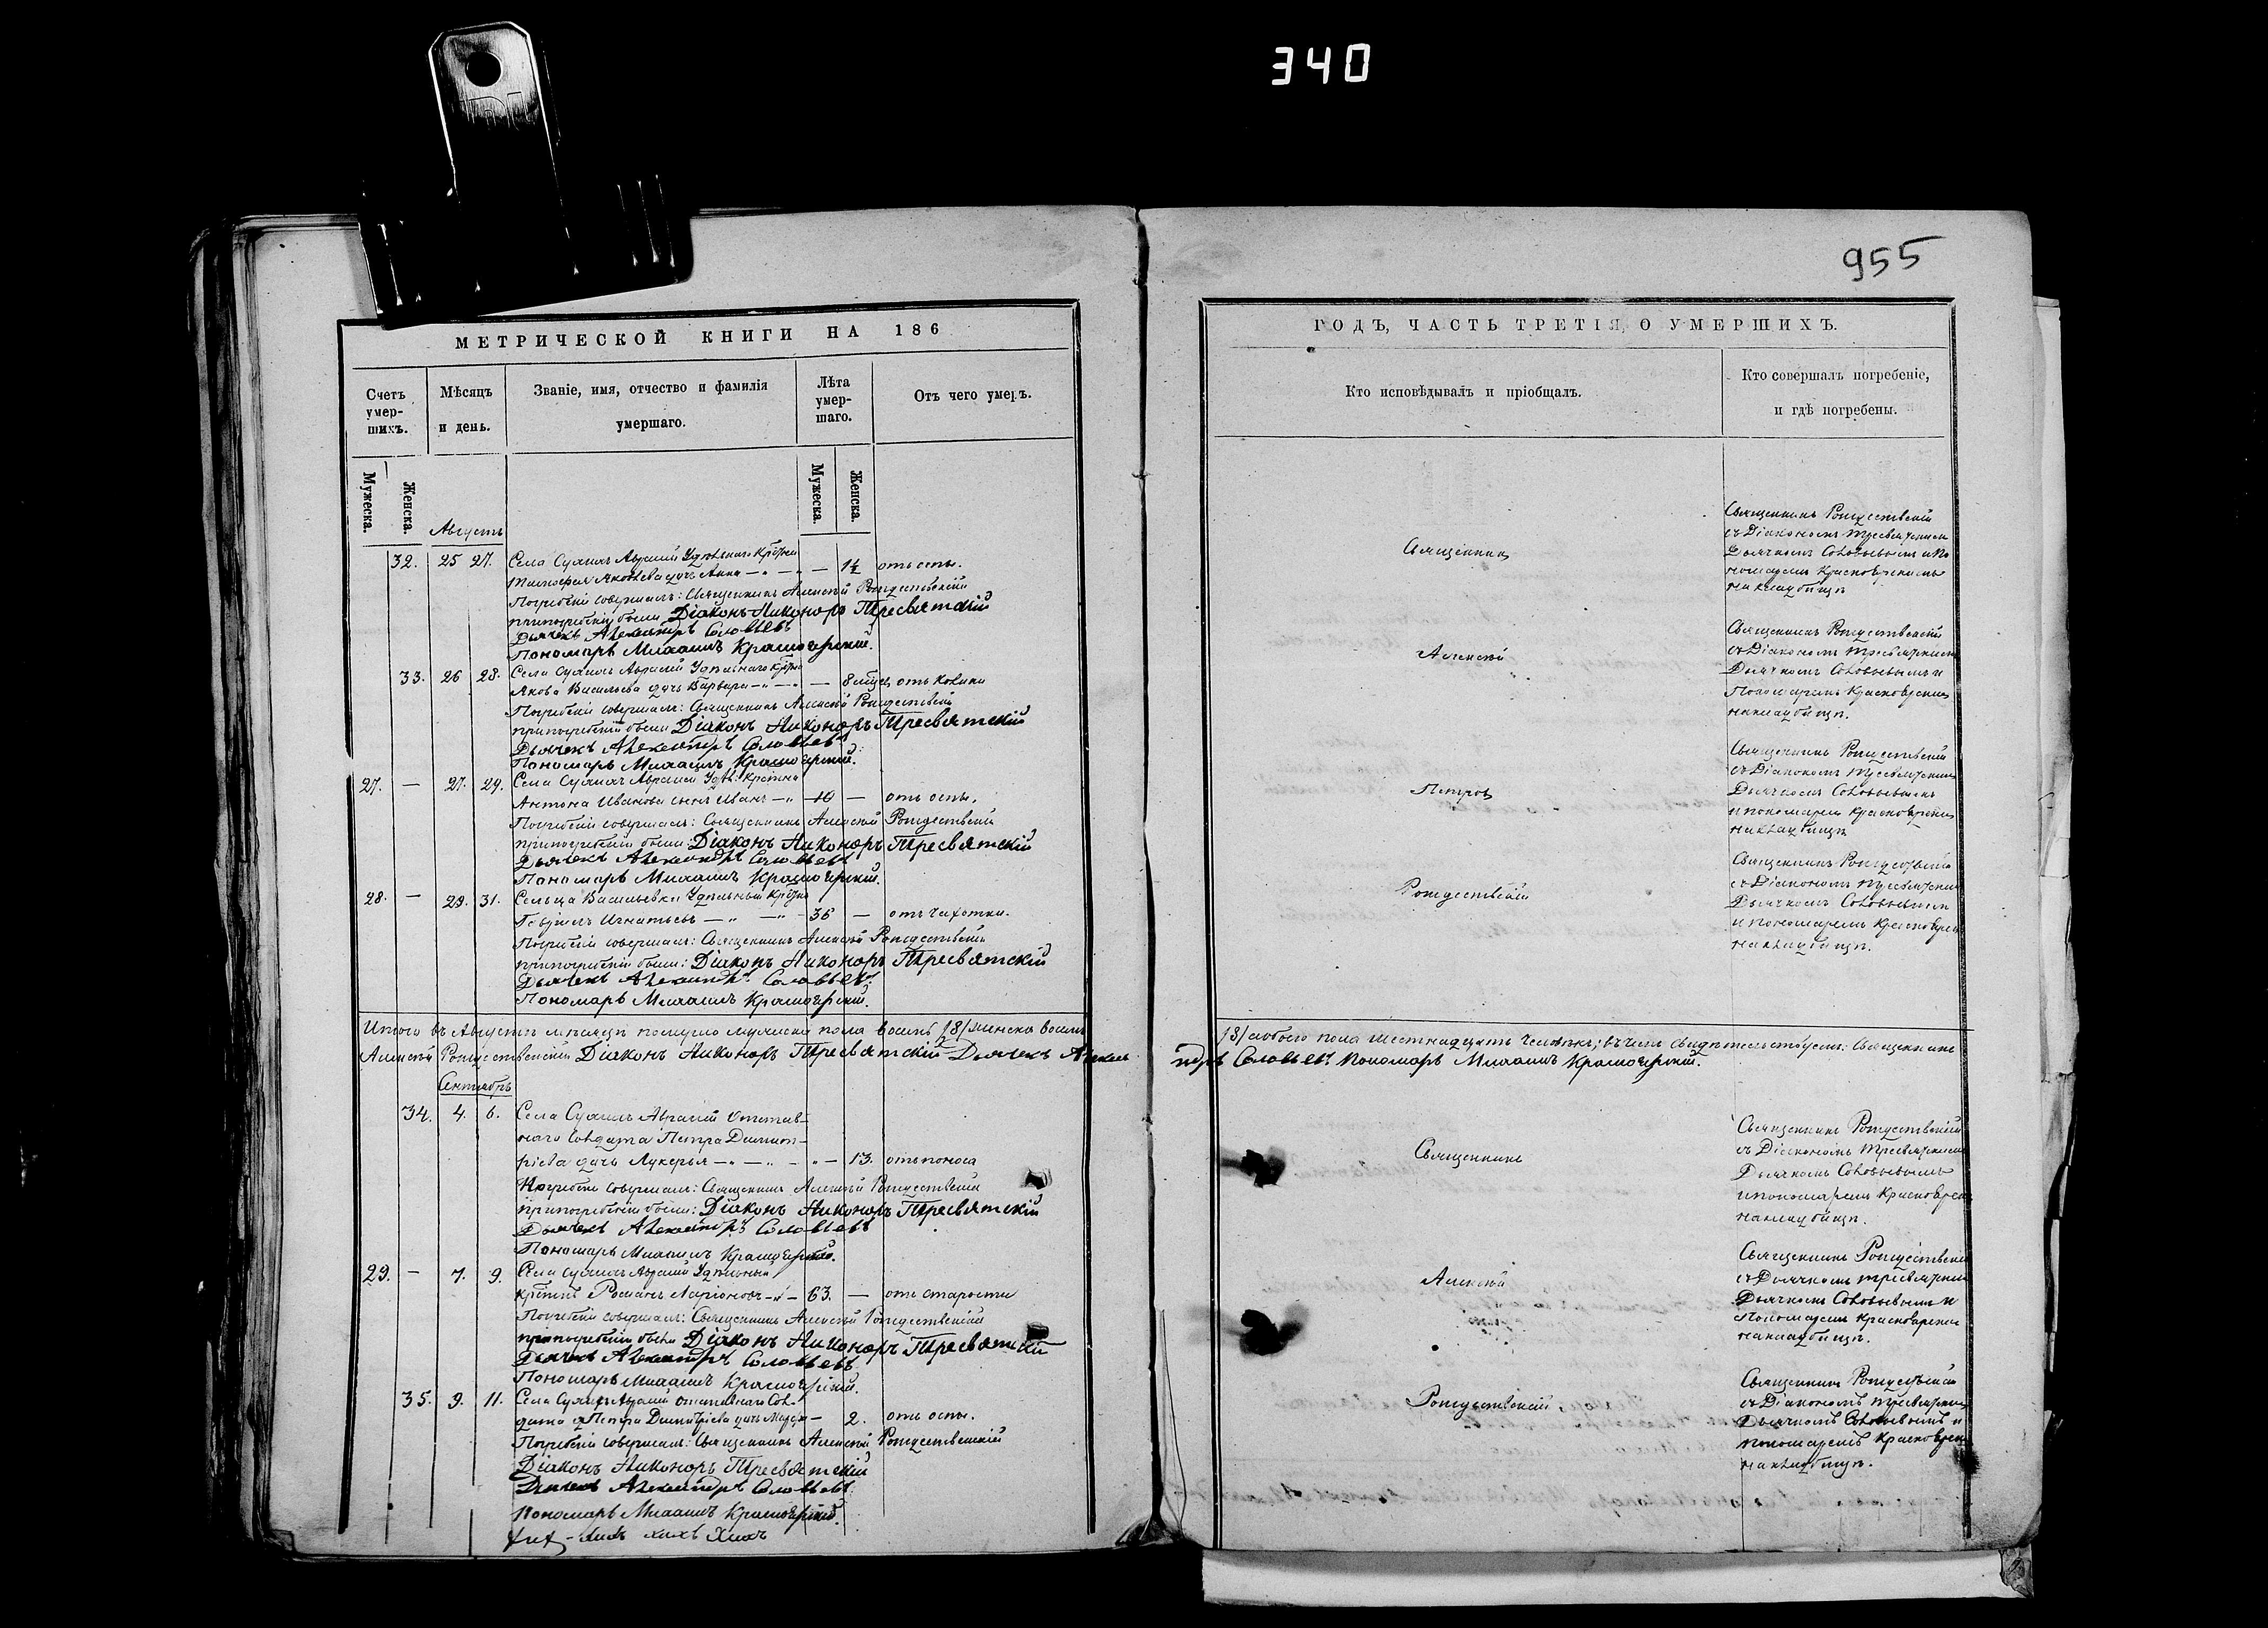 340
955
МЕТРИЧЕСКОЙ КНИГИ НА 186
Счетъ умер-шихъ.
Мѣсяцъ и день.
Званіе, имя, отчество и фамилія умершаго.
Лѣта умер-шаго.
Отъ чего умеръ.
Мужеска.
Женска.
Мужеска.
Женска.
Августъ
32. 25 27. Села
Тимофея Яковлева дочь Анна — 1½ отъ оспы.
Погребеніе совершалъ: Священникъ Алексѣй Рождественскій
при погребеніи были Діаконъ Никоноръ Тресвятскій
Дьячекъ Александръ Соловьевъ
Пономарь Михаилъ Красноярскій.
33. 26 28. Села
Якова Васильева дочь Варвара — 8 отъ
Погребеніе совершалъ: Священникъ Алексѣй Рождественскій
при погребеніи были Діаконъ Никоноръ Тресвятскій
Дьячекъ Александръ Соловьевъ
Пономарь Михаилъ Красноярскій.
27. — 27. 29. Села
Антона Иванова сынъ Иванъ — 10 — отъ оспы.
Погребеніе совершалъ: Священникъ Алексѣй Рождественскій
при погребеніи были: Діаконъ Никоноръ Тресвятскій
Дьячекъ Александръ Соловьевъ
Пономарь Михаилъ Красноярскій.
28. — 29. 31. Сельца Васильевки Удѣльный
Игнатьевъ — 36 — отъ чахотки.
Погребеніе совершалъ: Священникъ Алексѣй Рождественскій
при погребеніи были: Діаконъ Никоноръ Тресвятскій
Дьячекъ Александръ Соловьевъ.
Пономарь Михаилъ Красноярскій.
Итого въ Августѣ мѣсяцѣ померло мужеска пола восемь /8/ женска восемь
Алексѣй Рождественскій Діаконъ Никоноръ Тресвятскій Дьячекъ Алексан
Сентябрь
34. 4. 6. Села Отстав-
наго Солдата Петра Димит-
ріева дочь Лукерья — 13. отъ поноса
Погребеніе совершалъ: Священникъ Алексѣй Рождественскій
при погребеніи были: Діаконъ Никоноръ Тресвятскій
Дьячекъ Александръ Соловьевъ
Пономарь Михаилъ Красноярскій.
29. — 7. 9. Села Удѣльный
Романъ Ларіоновъ — 63. — отъ старости
Погребеніе совершалъ: Священникъ Алексѣй Рождественскій
при погребеніи были Діаконъ Никоноръ Тресвятскій
Дьячекъ Александръ Соловьевъ
Пономарь Михаилъ Красноярскій.
35. 9. 11. Села отставнаго Сол-
дата Петра Димитріева дочь — 2. отъ оспы.
Погребеніе совершалъ: Священникъ Алексѣй Рождественскій
Діаконъ Никоноръ Тресвятскій
Дьячекъ Александръ Соловьевъ
Пономарь Михаилъ Красноярскій.
ГОДЪ, ЧАСТЬ ТРЕТІЯ, О УМЕРШИХЪ.
Кто исповѣдывалъ и пріобщалъ.
Кто совершалъ погребеніе, и гдѣ погребены.
Священникъ
Священникъ Рождественскій
съ Діакономъ Тресвятскимъ
Дьячкомъ Соловьевымъ и По
номаремъ Красноярскимъ
на кладбищѣ
Алексѣй
Священникъ Рождественскій
съ Діакономъ Тресвятскимъ
Дьячкомъ Соловьевымъ и
Пономаремъ Красноярским
на кладбищѣ.
Петровъ
Священникъ Рождественскій
съ Діакономъ Тресвятским
Дьячкомъ Соловьевымъ
и пономаремъ Красноярским
на кладбищѣ
Рождественскій
Священникъ Рождественскій
съ Діакономъ Тресвятским
Дьячкомъ Соловьевымъ
и пономаремъ Краснояр
на кладбищѣ.
/8/ а обоего пола шестнадцать человѣкъ; въ чемъ свидѣтельствуемъ: Священникъ
ндръ Соловьевъ Пономарь Михаилъ Красноярскій.
Священникъ
Священникъ Рождественскій
съ Діакономъ Тресвятским
Дьячкомъ Соловьевымъ
и пономаремъ Красноярск
на кладбищѣ.
Алексѣй
Священникъ Рождественскі
съ Дьячкомъ Тресвятским
Дьячкомъ Соловьевымъ и
Пономаремъ Красноярским
на кладбищѣ.
Рождественскій
Священникъ Рождественскій
съ Діакономъ Тресвятским
Дьячкомъ Соловьевымъ и
пономаремъ Красноярск
на кладбищѣ.